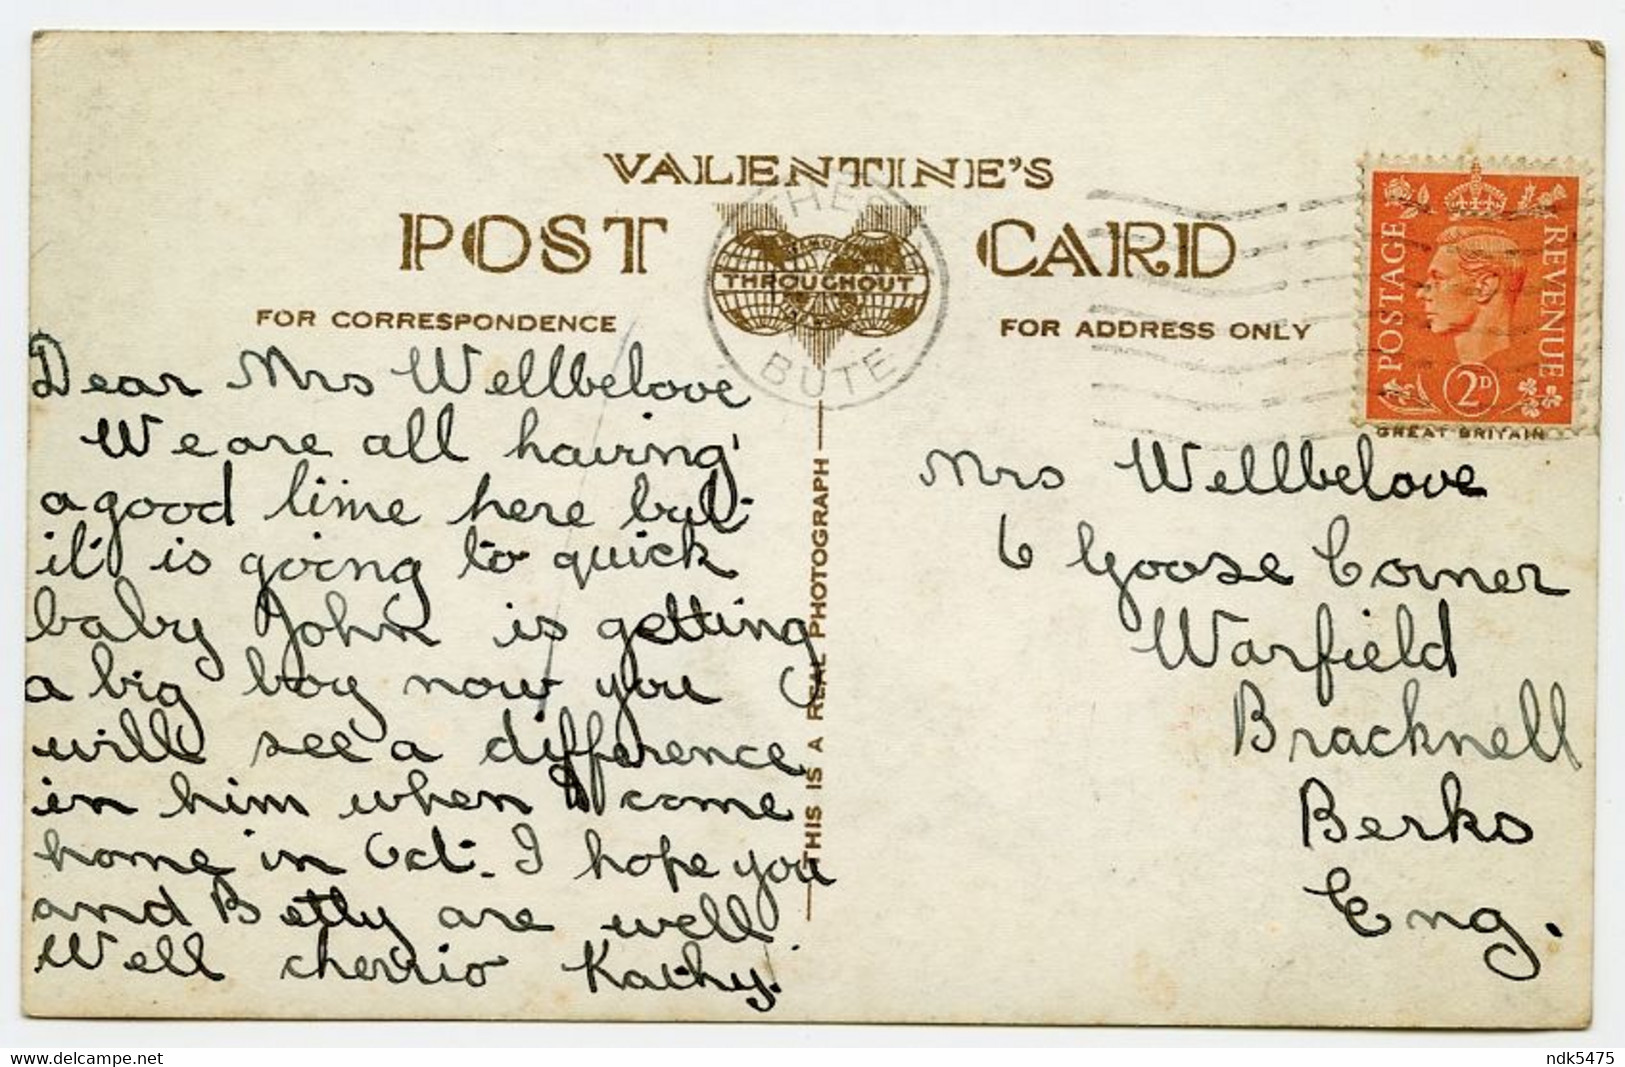 VALENTINE'S
POST CARD
THROUGHOUT
FOR CORRESPONDENCE
FOR ADDRESS ONLY
BUTE
POSTAGE
REVENUE
2D
GREAT BRITAIN
THIS IS A REAL PHOTOGRAPH
Dear Mrs Wellbelove
We are all having
a good time here but
it is going to quick
baby John is getting
a big boy now you
will see a difference
in him when I come
home in Oct. I hope you
and Betty are well
Well cherrio Kathy.
Mrs Wellbelove
6 Goose Corner
Warfield
Bracknell
Berks
Eng.
www.delcampe.net
ndk5475